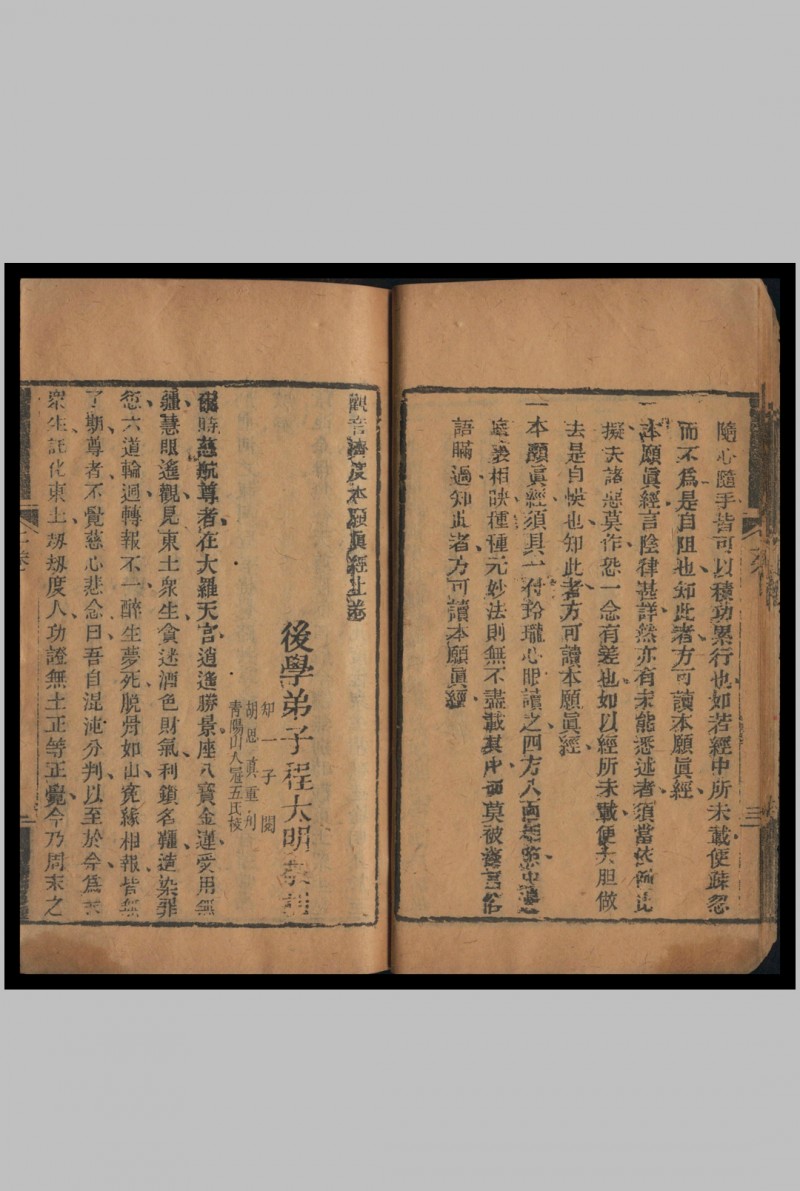 隨心隨手皆可以積功累行也如若經中所未載便疎忽
而不爲是自阻也知此者方可讀本願眞經
一本願眞經言陰律甚詳然亦有未能悉述者須當依例比
擬夫諸惡莫作恐一念有差也如以經所未載便大胆做
去是自悞也知此者方可讀本願眞經
一本願眞經須具一付玲瓏心眼讀之四方八面
相映種種元妙法則無不盡載其中而莫被言俗
語瞞過知此者方可讀本願眞經
三
觀音濟度本願眞經上卷
後學弟子程大明
知一子閱
胡恩眞重刋
青陽山人冠五氏校
爾時慈航尊者在大羅天宮逍遙勝景座八寶金蓮受用無
疆慧眼遙觀見東土衆生貪迷酒色財氣利鎖名韁造染罪
愆六道輪迴轉報不一醉生夢死脫骨如山寃緣相報皆無
了期尊者不覺慈心悲念曰吾自混沌分判以至於今爲
衆生託化東土刼刼度人功證無上正等正覺今乃周末之
上卷
一